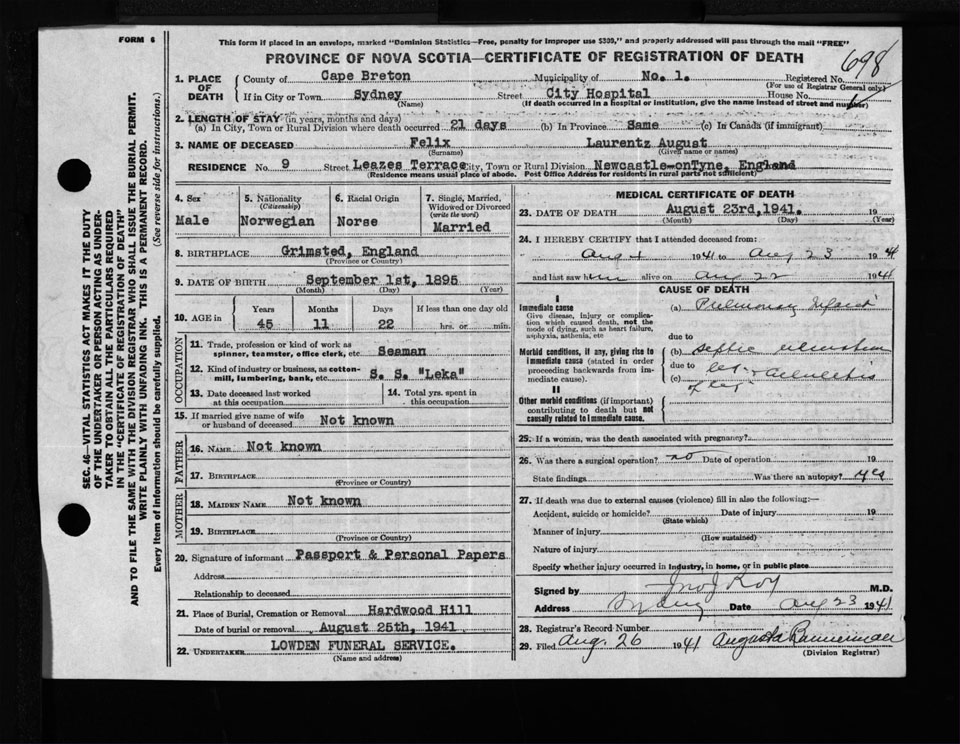 FORM 6
This form if placed in an envelope, marked "Dominion Statistics—Free, penalty for improper use $300," and properly addressed will pass through the mail "FREE"
PROVINCE OF NOVA SCOTIA—CERTIFICATE OF REGISTRATION OF DEATH
698
1. PLACE OF DEATH County of Cape Breton Municipality of No. 1. Registered No.
(For use of Registrar General only)
If in City or Town Sydney Street City Hospital House No.
(Name) (If death occurred in a hospital or institution, give the name instead of street and number)
2. LENGTH OF STAY (in years, months and days)
(a) In City, Town or Rural Division where death occurred 21 days (b) In Province Same (c) In Canada (if immigrant)
3. NAME OF DECEASED Felix Laurentz August
(Surname) (Given name or names)
RESIDENCE No. 9 Street Leazes Terrace City, Town or Rural Division Newcastle-onTyne, England
(Residence means usual place of abode. Post Office Address for residents in rural parts not sufficient)
4. Sex Male
5. Nationality (Citizenship) Norwegian
6. Racial Origin Norse
7. Single, Married, Widowed or Divorced (write the word) Married
8. BIRTHPLACE Grimsted, England
(Province or Country)
9. DATE OF BIRTH September 1st, 1895
(Month) (Day) (Year)
10. AGE in Years Months Days If less than one day old
45 11 22 hrs. or min.
OCCUPATION
11. Trade, profession or kind of work as spinner, teamster, office clerk, etc. Seaman
12. Kind of industry or business, as cotton-mill, lumbering, bank, etc. S. S. "Leka"
13. Date deceased last worked at this occupation
14. Total yrs. spent in this occupation
15. If married give name of wife or husband of deceased Not known
FATHER
16. NAME Not known
17. BIRTHPLACE
(Province or Country)
MOTHER
18. MAIDEN NAME Not known
19. BIRTHPLACE
(Province or Country)
20. Signature of informant Passport & Personal Papers
Address
Relationship to deceased
21. Place of Burial, Cremation or Removal Hardwood Hill
Date of burial or removal August 25th, 1941
22. UNDERTAKER LOWDEN FUNERAL SERVICE.
(Name and address)
MEDICAL CERTIFICATE OF DEATH
23. DATE OF DEATH August 23rd, 1941. 19
(Month) (Day) (Year)
24. I HEREBY CERTIFY that I attended deceased from:
Aug 1941 to Aug 23 1941
and last saw him alive on Aug 22 1941
CAUSE OF DEATH
I
Immediate cause
Give disease, injury or complication which caused death, not the mode of dying, such as heart failure, asphyxia, asthenia, etc
(a) Pulmonary Infarct
due to
Morbid conditions, if any, giving rise to immediate cause (stated in order proceeding backwards from immediate cause).
(b) Septic
due to
(c)
II
Other morbid conditions (if important) contributing to death but not causally related to immediate cause.
25. If a woman, was the death associated with pregnancy?
26. Was there a surgical operation? no Date of operation 19
State findings Was there an autopsy? yes
27. If death was due to external causes (violence) fill in also the following:—
Accident, suicide or homicide? Date of injury 19
(State which)
Manner of injury
(How sustained)
Nature of injury
Specify whether injury occurred in industry, in home, or in public place
Signed by Jno J Roy M.D.
Address Sydney Date Aug 23 1941
28. Registrar's Record Number
29. Filed Aug. 26 1941 Augusta Bannerman
(Division Registrar)
SEC. 46—VITAL STATISTICS ACT MAKES IT THE DUTY
OF THE UNDERTAKER OR PERSON ACTING AS UNDER-
TAKER TO OBTAIN ALL THE PARTICULARS REQUIRED
IN THE "CERTIFICATE OF REGISTRATION OF DEATH"
AND TO FILE THE SAME WITH THE DIVISION REGISTRAR WHO SHALL ISSUE THE BURIAL PERMIT.
WRITE PLAINLY WITH UNFADING INK. THIS IS A PERMANENT RECORD.
Every item of information should be carefully supplied. (See reverse side for instructions.)